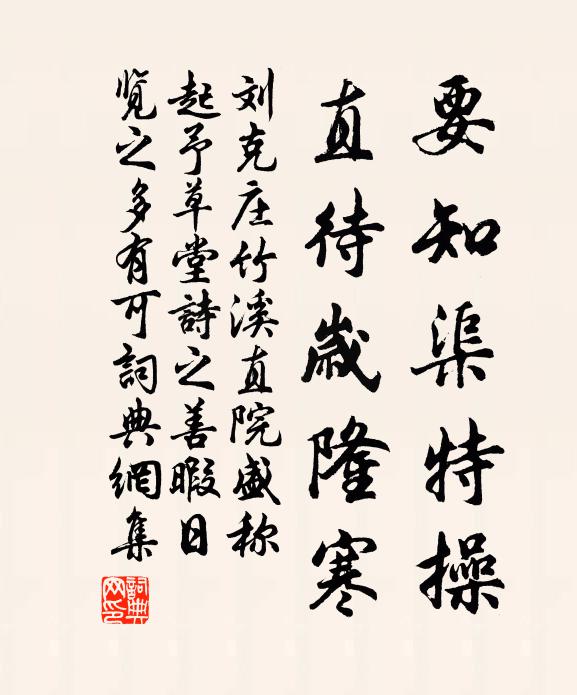 要知渠特操
直待歲隆寒
刘克庄竹溪直院盛称
起予草堂詩之善暇日
覽之多有可詞典網集
詞典网印